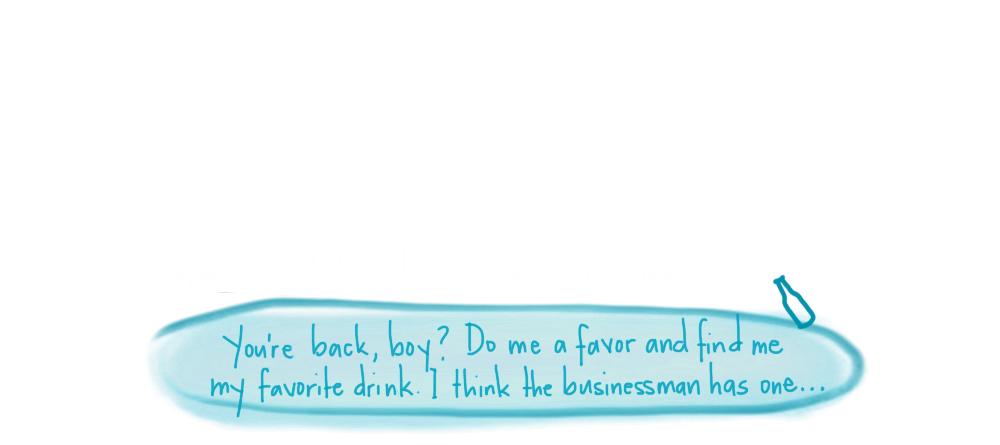 You're back, boy? Do me a favor and find me
my favorite drink. I think the businessman has one...